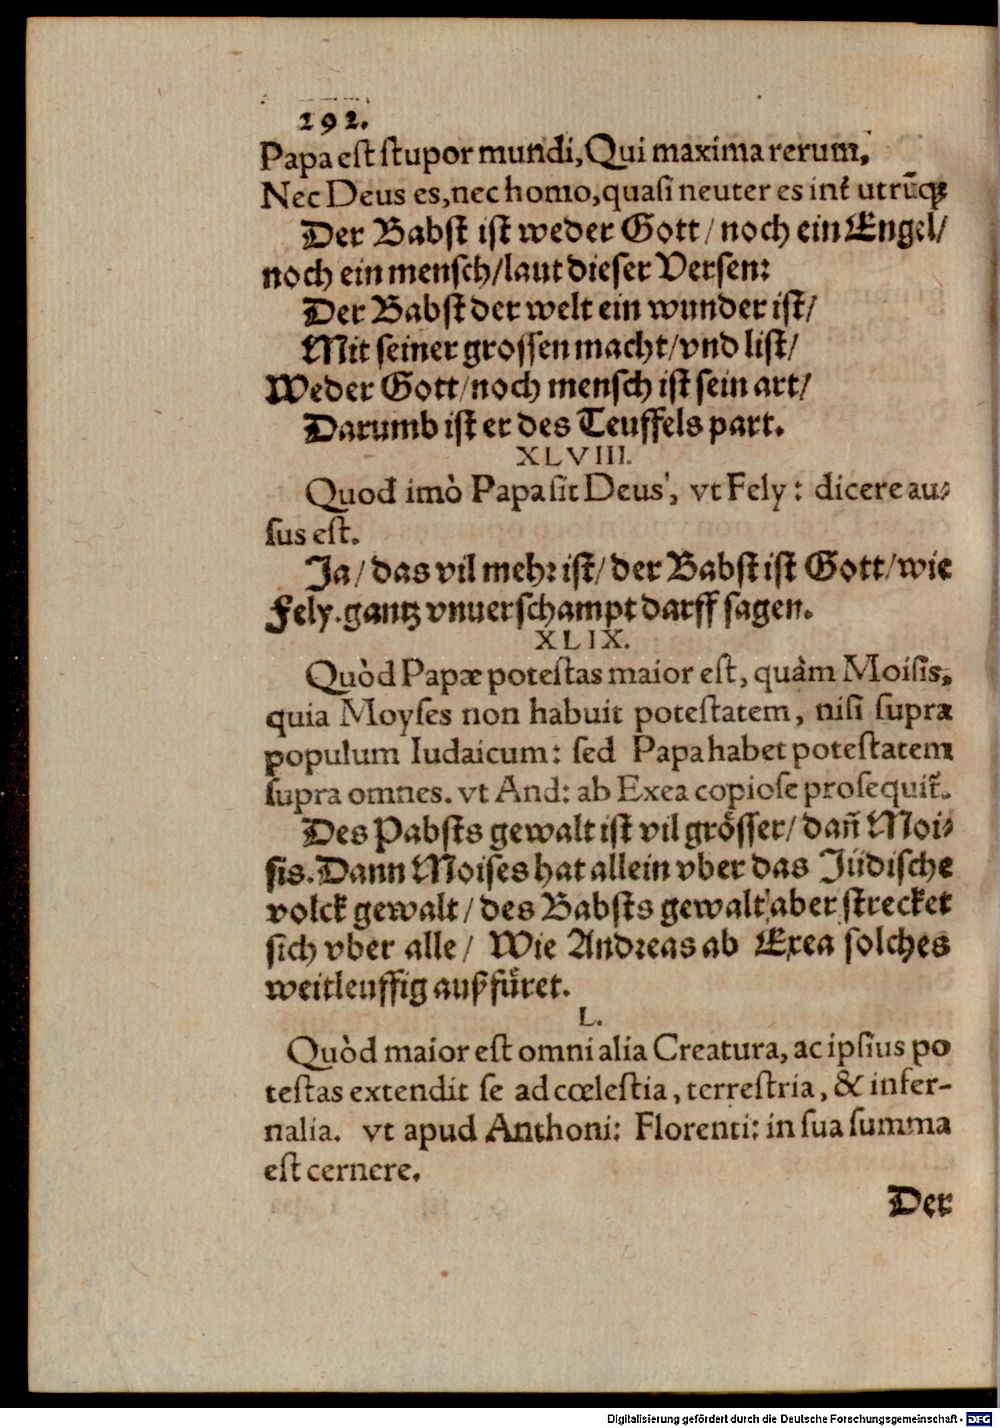 292.
Papa est stupor mundi, Qui maxima rerum,
Nec Deus es, nec homo, quasi neuter es int̃ utrũq;
Der Babst ist weder Gott / noch ein Engel/
noch ein mensch/laut dieser Versen:
Der Babst der welt ein wunder ist/
Mit seiner grossen macht/vnd list/
Weder Gott/noch mensch ist sein art/
Darumb ist er des Teuffels part.
XLVIII.
Quod imò Papa sit Deus, vt Fely: dicere au-
sus est.
Ja/das vil mehr ist/der Babst ist Gott/wie
Fely. gantz vnuerschampt darff sagen.
XLIX.
Quòd Papæ potestas maior est, quàm Moisis,
quia Moyses non habuit potestatem, nisi supra
populum Iudaicum: sed Papa habet potestatem
supra omnes. vt And: ab Exea copiose prosequit̃.
Des Pabsts gewalt ist vil grösser/dañ Moi-
sis. Dann Moises hat allein vber das Jüdische
volck gewalt/des Babsts gewalt aber strecket
sich vber alle/ Wie Andreas ab Exea solches
weitleuffig außfüret.
L.
Quòd maior est omni alia Creatura, ac ipsius po
testas extendit se ad cœlestia, terrestria, & infer-
nalia. vt apud Anthoni: Florenti: in sua summa
est cernere.
Der
Digitalisierung gefördert durch die Deutsche Forschungsgemeinschaft - DFG